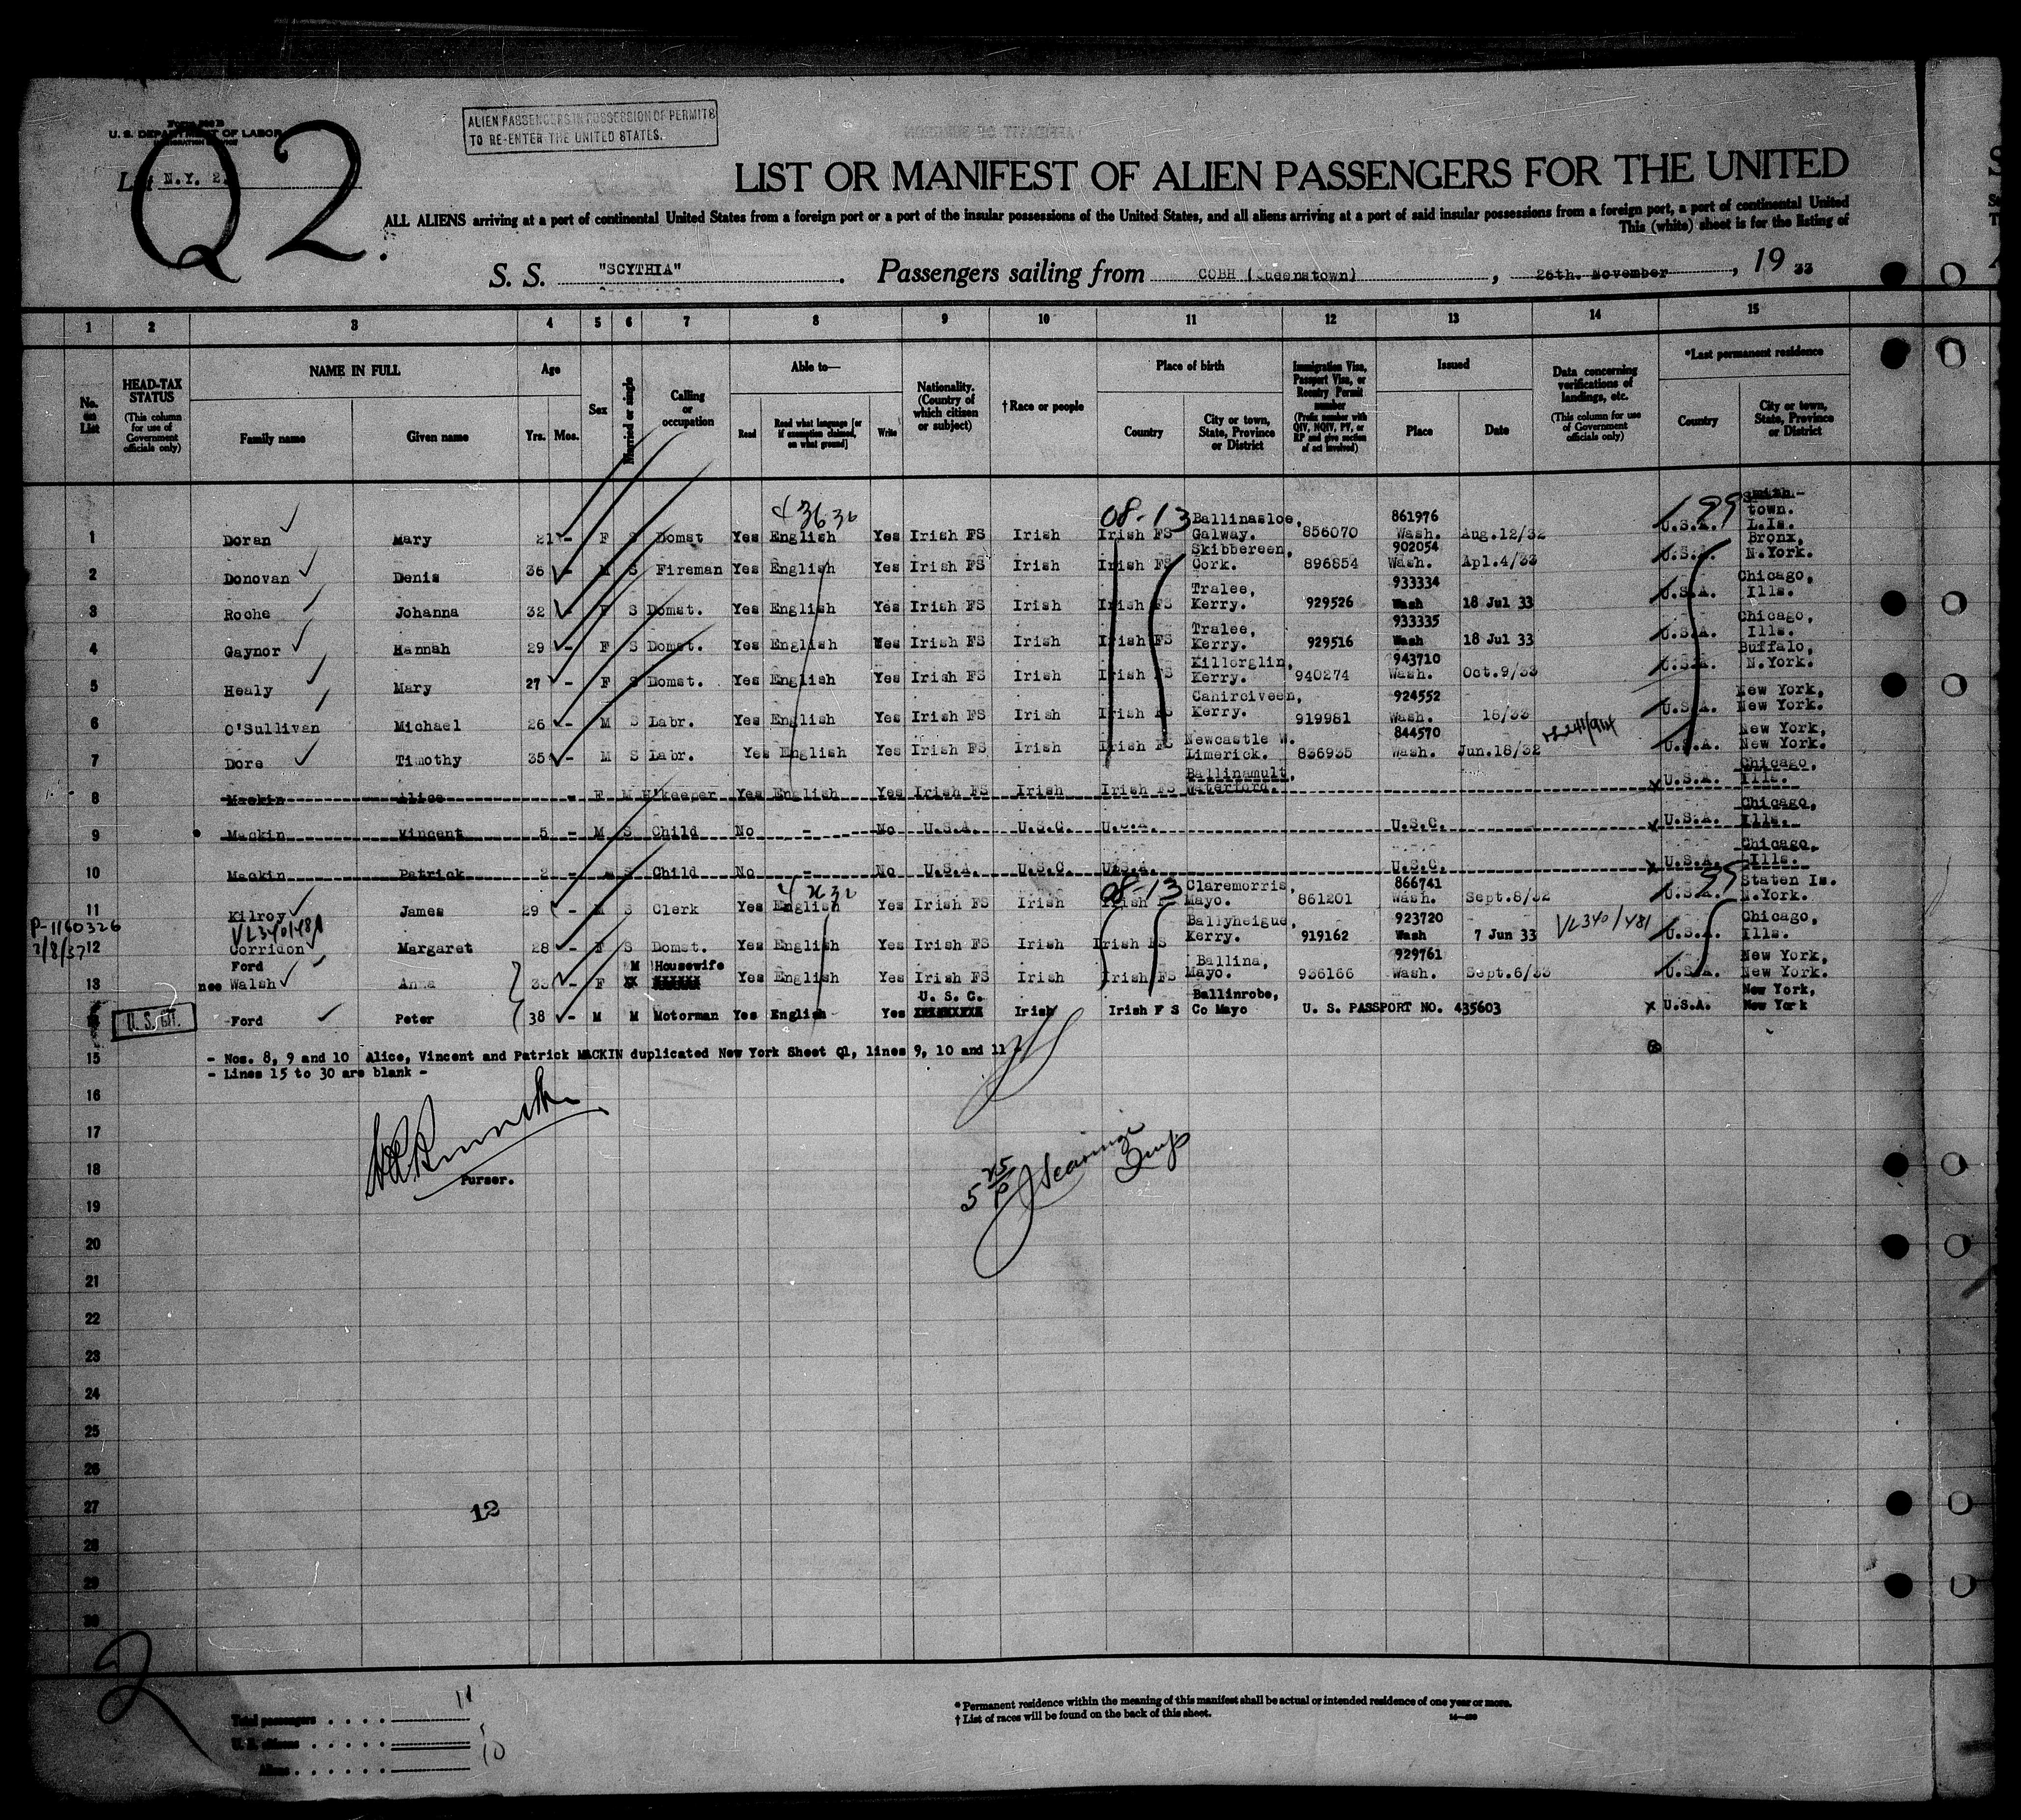 Form 500 B
U. S. DEPARTMENT OF LABOR
IMMIGRATION SERVICE
ALIEN PASSENGERS IN POSSESSION OF PERMITS
TO RE-ENTER THE UNITED STATES.
List N.Y. 2.
Q2.
LIST OR MANIFEST OF ALIEN PASSENGERS FOR THE UNITED
ALL ALIENS arriving at a port of continental United States from a foreign port or a port of the insular possessions of the United States, and all aliens arriving at a port of said insular possessions from a foreign port, a port of continental United
This (white) sheet is for the listing of
S. S. "SCYTHIA" . Passengers sailing from COBH (Queenstown) , 26th. November , 19 33
1 2 3 4 5 6 7 8 9 10 11 12 13 14 15
No. on List
HEAD-TAX STATUS (This column for use of Government officials only)
NAME IN FULL Family name Given name
Age Yrs. Mos.
Sex
Married or single
Calling or occupation
Able to— Read Read what language [or if exemption claimed, on what ground] Write
Nationality. (Country of which citizen or subject)
† Race or people
Place of birth Country City or town, State, Province or District
Immigration Visa, Passport Visa, or Reentry Permit number (Prefix number with QIV, NQIV, PV, or RP and give section of act involved)
Issued Place Date
Data concerning verifications of landings, etc. (This column for use of Government officials only)
*Last permanent residence Country City or town, State, Province or District
08-13 199
1 Doran Mary 21 - F S Domst Yes English Yes Irish FS Irish Irish FS Ballinasloe, Galway. 856070 861976 Wash. Aug.12/32 U.S.A. Smith-town. L.Is.
2 Donovan Denis 36 - M S Fireman Yes English Yes Irish FS Irish Irish FS Skibbereen, Cork. 896854 902054 Wash. Apl.4/33 U.S.A. Bronx, N.York.
3 Roche Johanna 32 - F S Domst. Yes English Yes Irish FS Irish Irish FS Tralee, Kerry. 929526 933334 Wash 18 Jul 33 U.S.A. Chicago, Ills.
4 Gaynor Hannah 29 - F S Domst. Yes English Yes Irish FS Irish Irish FS Tralee, Kerry. 929516 933335 Wash 18 Jul 33 U.S.A. Chicago, Ills.
5 Healy Mary 27 - F S Domst. Yes English Yes Irish FS Irish Irish FS Killorglin, Kerry. 940274 943710 Wash. Oct.9/33 U.S.A. Buffalo, N.York.
6 O'Sullivan Michael 26 - M S Labr. Yes English Yes Irish FS Irish Irish FS Cahirciveen, Kerry. 919981 924552 Wash. 16/33 U.S.A. New York, New York.
7 Dore Timothy 35 - M S Labr. Yes English Yes Irish FS Irish Irish FS Newcastle W. Limerick. 836935 844570 Wash. Jun.18/32 U.S.A. New York, New York.
8 Mackin Alice - F M H'keeper Yes English Yes Irish FS Irish Irish FS Ballinamult, Waterford. x U.S.A. Chicago, Ills.
9 Mackin Vincent 5 - M S Child No - No U.S.A. U.S.C. U.S.A. U.S.C. x U.S.A. Chicago, Ills.
10 Mackin Patrick 2 - M S Child No - No U.S.A. U.S.C U.S.A. U.S.C. x U.S.A. Chicago, Ills.
08-13
11 Kilroy James 29 - M S Clerk Yes English Yes Irish FS Irish Irish FS Claremorris, Mayo. 861201 866741 Wash. Sept.8/32 U.S.A. Staten Is. N.York.
P-1160326
VL340/481
12 Corridon Margaret 28 - F S Domst. Yes English Yes Irish FS Irish Irish FS Ballyheigue, Kerry. 919162 923720 Wash 7 Jun 33 VL340/481 U.S.A. Chicago, Ills.
13 Ford nee Walsh Anna 33 - F M Housewife Yes English Yes Irish FS Irish Irish FS Ballina, Mayo. 936166 929761 Wash. Sept.6/33 U.S.A. New York, New York.
U. S. Ford Peter 38 - M M Motorman Yes English Yes U. S. C. Irish Irish F S Ballinrobe, Co Mayo U. S. PASSPORT NO. 435603 x U.S.A. New York, New York
15 - Nos. 8, 9 and 10 Alice, Vincent and Patrick MACKIN duplicated New York Sheet Q1, lines 9, 10 and 11 -
- Lines 15 to 30 are blank -
16
17
18
Purser.
19
20
21
22
23
24
25
26
27
12
28
29
30
2
Total passengers . . . . 11
U. S. citizens . . . . .
Aliens . . . . . . 10
* Permanent residence within the meaning of this manifest shall be actual or intended residence of one year or more.
† List of races will be found on the back of this sheet.